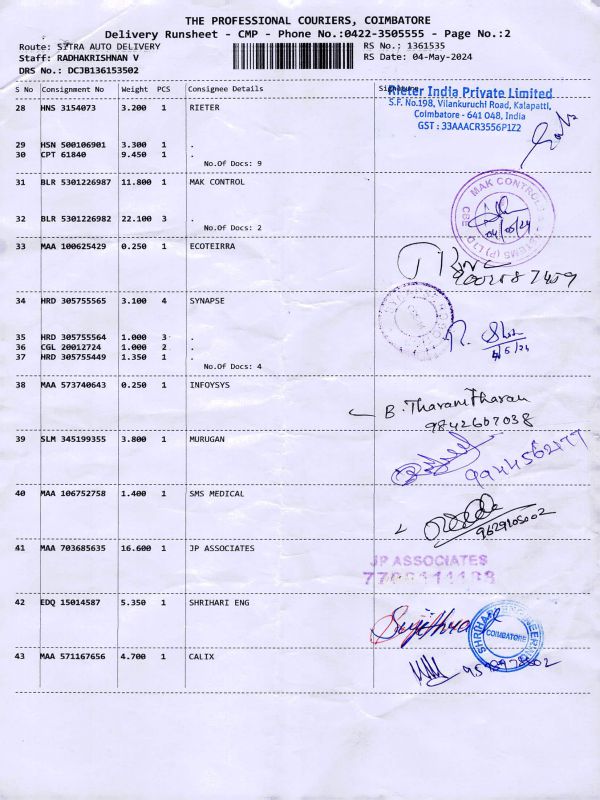 THE PROFESSIONAL COURIERS, COIMBATORE
Delivery Runsheet - CMP - Phone No.:0422-3505555 - Page No.:2
Route: SITRA AUTO DELIVERY
RS No.: 1361535
Staff: RADHAKRISHNAN V
RS Date: 04-May-2024
DRS No.: DCJB136153502
S No Consignment No Weight PCS Consignee Details
28 HNS 3154073 3.200 1 RIETER
Rieter India Private Limited
S.F. No.198, Vilankuruchi Road, Kalapatti,
Coimbatore - 641 048, India
GST : 33AAACR3556P1Z2
29 HSN 500106901 3.300 1 .
30 CPT 61840 9.450 1 .
No.Of Docs: 9
31 BLR 5301226987 11.800 1 MAK CONTROL
MAK CONTROLS
04/05/24
32 BLR 5301226982 22.100 3 .
No.Of Docs: 2
33 MAA 100625429 0.250 1 ECOTEIRRA
34 HRD 305755565 3.100 4 SYNAPSE
35 HRD 305755564 1.000 3 .
36 CGL 20012724 1.000 2 .
37 HRD 305755449 1.350 1 .
4/5/24
No.Of Docs: 4
38 MAA 573740643 0.250 1 INFOYSYS
B. Tharanitharan
9842607038
39 SLM 345199355 3.800 1 MURUGAN
9944562177
40 MAA 106752758 1.400 1 SMS MEDICAL
41 MAA 703685635 16.600 1 JP ASSOCIATES
JP ASSOCIATES
42 EDQ 15014587 5.350 1 SHRIHARI ENG
COIMBATORE
43 MAA 571167656 4.700 1 CALIX